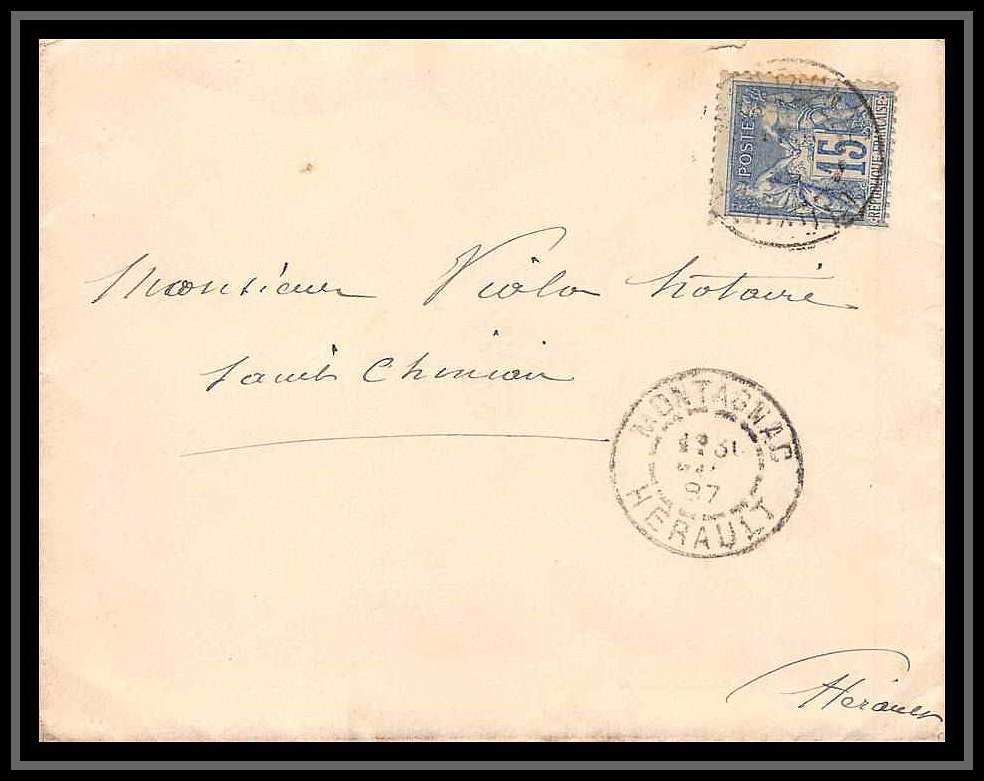 POSTES
15
REPUBLIQUE FRANÇAISE
Monsieur Viala Notaire
Saint Chinian
MONTAGNAC
97
HERAULT
Hérault